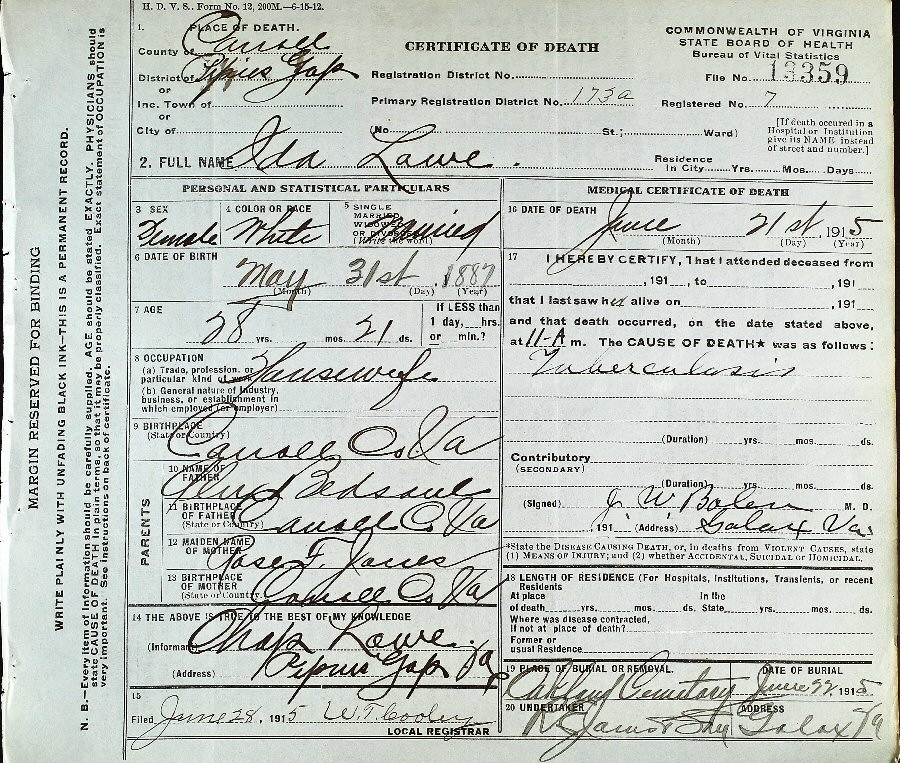 H. D. V. S. Form No. 12, 200M.—6-15-12.
1. PLACE OF DEATH.
County of Carroll
District of Pipers Gap
or
Inc. Town of
or
City of
CERTIFICATE OF DEATH
Registration District No.
Primary Registration District No. 173a
(No. St.; Ward)
COMMONWEALTH OF VIRGINIA
STATE BOARD OF HEALTH
Bureau of Vital Statistics
File No. 13359
Registered No. 7
[If death occured in a
Hospital or Institution
give its NAME instead
of street and number.]
2. FULL NAME Ida Lowe.
Residence
In City Yrs. Mos. Days
PERSONAL AND STATISTICAL PARTICULARS
3 SEX
Female
4 COLOR OR RACE
White
5 SINGLE
MARRIED
WIDOWED
OR DIVORCED
(Write the word)
Married
6 DATE OF BIRTH
May 31st, 1887
(Month) (Day) (Year)
7 AGE
28 yrs. mos. 21 ds.
If LESS than
1 day, hrs.
or min.?
8 OCCUPATION
(a) Trade, profession, or
particular kind of work Housewife
(b) General nature of Industry,
business, or establishment in
which employed (or employer)
9 BIRTHPLACE
(State or Country)
Carroll Co Va
PARENTS
10 NAME OF
FATHER
Bedsaul
11 BIRTHPLACE
OF FATHER
(State or Country)
Carroll Co Va
12 MAIDEN NAME
OF MOTHER
Rose F Jones
13 BIRTHPLACE
OF MOTHER
(State or Country)
Carroll Co Va
14 THE ABOVE IS TRUE TO THE BEST OF MY KNOWLEDGE
(Informant) Chap Lowe.
(Address) Pipers Gap Va
15
Filed June 28, 1915 W. T. Cooley
LOCAL REGISTRAR
MEDICAL CERTIFICATE OF DEATH
16 DATE OF DEATH
June 21st, 1915
(Month) (Day) (Year)
17 I HEREBY CERTIFY, That I attended deceased from
, 191 , to , 191
that I last saw her alive on , 191
and that death occurred, on the date stated above,
at 11-A m. The CAUSE OF DEATH★ was as follows:
Tuberculosis
(Duration) yrs. mos. ds.
Contributory
(SECONDARY)
(Duration) yrs. mos. ds.
(Signed) J W Bolen M. D.
, 191 (Address) Galax Va
*State the DISEASE CAUSING DEATH, or, in deaths from VIOLENT CAUSES, state
(1) MEANS OF INJURY; and (2) whether ACCIDENTAL, SUICIDAL or HOMICIDAL.
18 LENGTH OF RESIDENCE (For Hospitals, Institutions, Transients, or recent
Residents
At place In the
of death yrs. mos. ds. State yrs. mos. ds.
Where was disease contracted,
if not at place of death?
Former or
usual Residence
19 PLACE OF BURIAL OR REMOVAL.
Oakland Cemetary
DATE OF BURIAL
June 22 1915
20 UNDERTAKER
ADDRESS
Galax Va
MARGIN RESERVED FOR BINDING
WRITE PLAINLY WITH UNFADING BLACK INK—THIS IS A PERMANENT RECORD.
N. B.—Every item of information should be carefully supplied. AGE should be stated EXACTLY. PHYSICIANS should
state CAUSE OF DEATH in plain terms, so that it may be properly classified. Exact statement of OCCUPATION is
very important. See instructions on back of certificate.